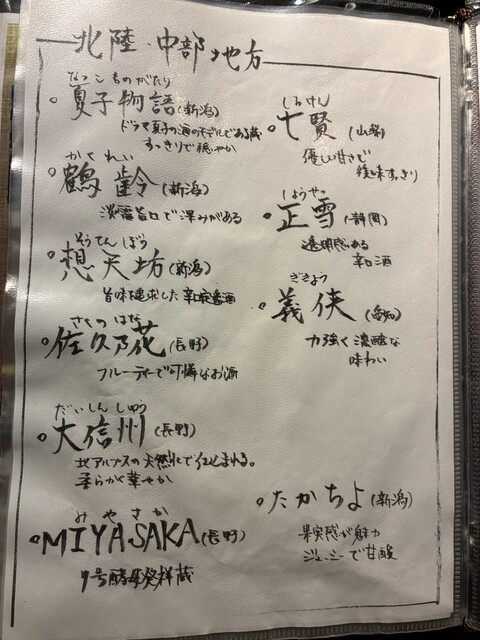 北陸・中部地方
なつこものがたり
夏子物語(新潟)
ドラマ夏子の酒のモデルである蔵
すっきりで穏やか
かくれい
鶴齢(新潟)
淡麗旨口で深みがある
そうてんぼう
想天坊(新潟)
旨味を追求した辛口定番酒
さくのはな
佐久乃花(長野)
フルーティーで可憐なお酒
だいしんしゅう
大信州(長野)
北アルプスの天然水で仕込まれる。
柔らかく華やか
みやさか
MIYASAKA(長野)
7号酵母発祥蔵
しちけん
七賢(山梨)
優しい甘さで
後味すっきり
しょうせつ
正雪(静岡)
透明感ある
辛口酒
ぎきょう
義侠(愛知)
力強く濃醇な
味わい
たかちよ(新潟)
果実感が魅力
ジューシーで甘酸